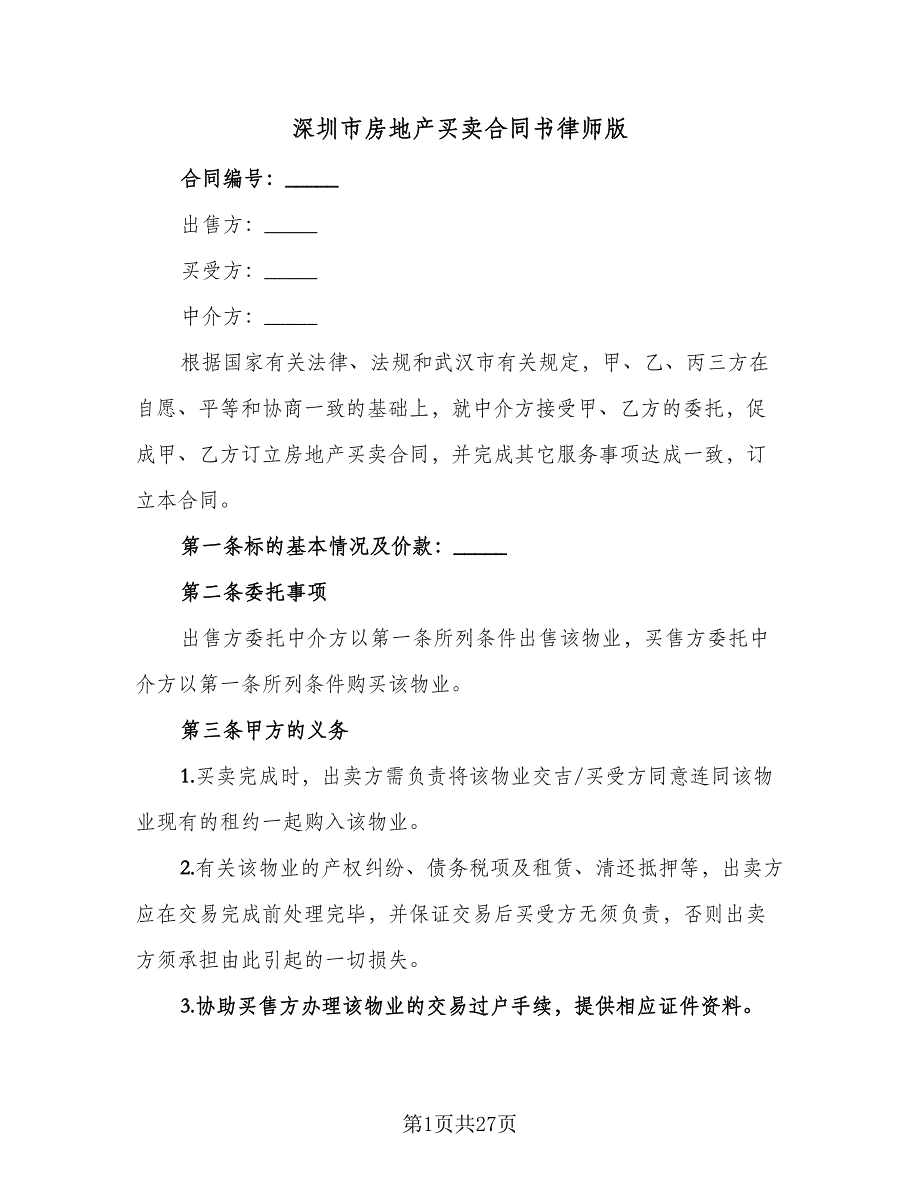 深圳市房地产买卖合同书律师版
合同编号：_____
出售方：_____
买受方：_____
中介方：_____
根据国家有关法律、法规和武汉市有关规定，甲、乙、丙三方在
自愿、平等和协商一致的基础上，就中介方接受甲、乙方的委托，促
成甲、乙方订立房地产买卖合同，并完成其它服务事项达成一致，订
立本合同。
第一条标的基本情况及价款：_____
第二条委托事项
出售方委托中介方以第一条所列条件出售该物业，买售方委托中
介方以第一条所列条件购买该物业。
第三条甲方的义务
1.买卖完成时，出卖方需负责将该物业交吉/买受方同意连同该物
业现有的租约一起购入该物业。
2.有关该物业的产权纠纷、债务税项及租赁、清还抵押等，出卖方
应在交易完成前处理完毕，并保证交易后买受方无须负责，否则出卖
方须承担由此引起的一切损失。
3.协助买售方办理该物业的交易过户手续，提供相应证件资料。
第1页共27页